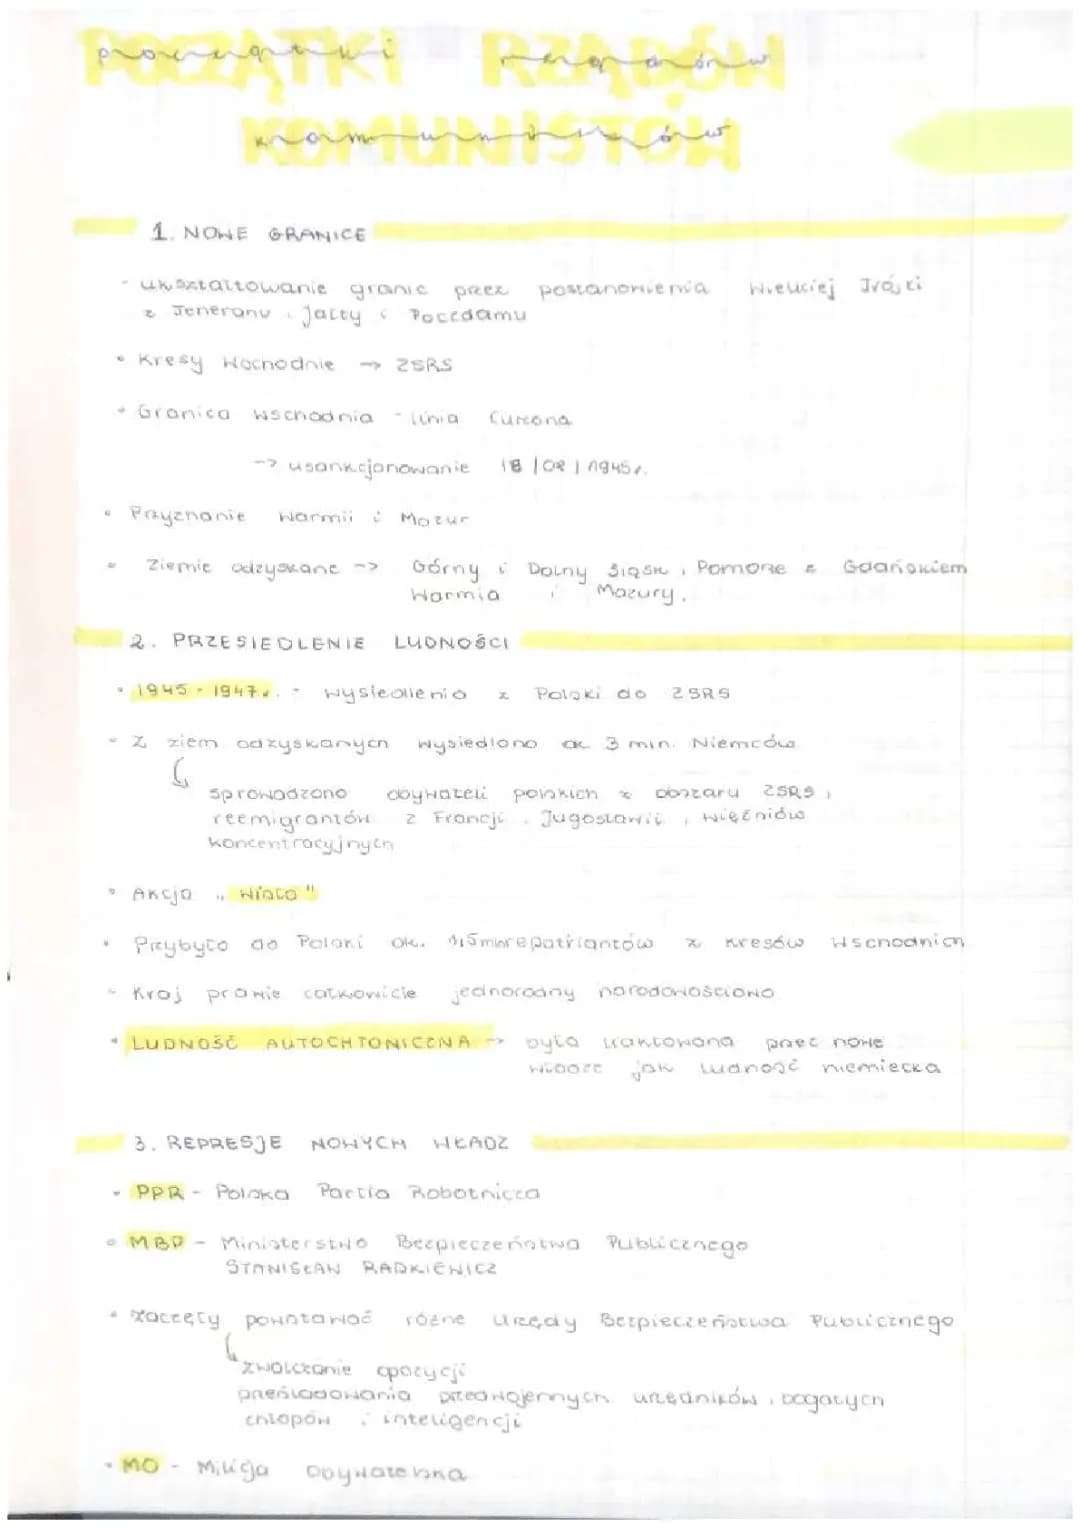 POCZĄTKI RZĄDÓW
początki rządów
KOMUNISTÓW
komunistów
1. NOWE GRANICE
- ukształtowanie granic przez postanowienia Wielkiej Trójki
z Teheranu, Jałty i Poczdamu
• Kresy Wschodnie → ZSRS
• Granica wschodnia - linia Curzona
-> usankcjonowanie 18/08/1945r.
• Przyznanie Warmii i Mazur
• Ziemie odzyskane -> Górny i Dolny Śląsk, Pomorze z Gdańskiem
Warmia i Mazury.
2. PRZESIEDLENIE LUDNOŚCI
• 1945-1947r. - wysiedlenia z Polski do ZSRS
- Z ziem odzyskanych wysiedlono ok 3 mln. Niemców
sprowadzono obywateli polskich z obszaru ZSRS,
reemigrantów z Francji, Jugosławii, więźniów
koncentracyjnych
• Akcja „Wisła"
• Przybyło do Polski ok. 1,5mln repatriantów z Kresów Wschodnich
- Kraj prawie całkowicie jednorodny narodowościowo
• LUDNOŚĆ AUTOCHTONICZNA → była traktowana przez nowe
władze jak ludność niemiecka
3. REPRESJE NOWYCH WŁADZ
• PPR - Polska Partia Robotnicza
• MBP - Ministerstwo Bezpieczeństwa Publicznego
STANISŁAW RADKIEWICZ
• Zaczęły powstawać różne Urzędy Bezpieczeństwa Publicznego
zwalczanie opozycji
prześladowania przedwojennych urzędników, bogatych
chłopów i inteligencji
• MO - Milicja Obywatelska